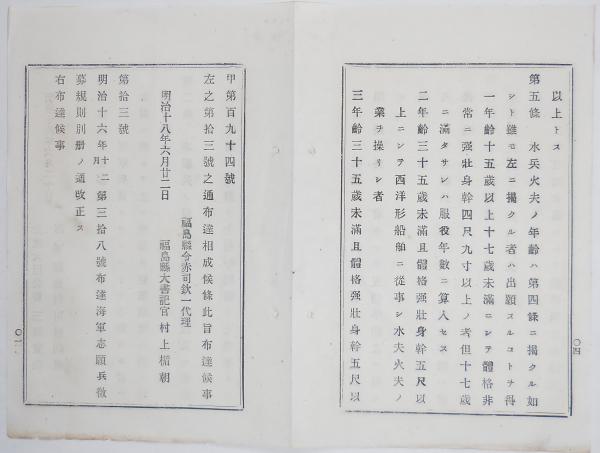 以上トス
第五條 水兵火夫ノ年齡ハ第四條ニ揭クル如
シト雖モ左ニ揭クル者ハ出願スルコトヲ得
一年齡十五歲以上十七歲未滿ニシテ體格非
常ニ强壯身幹四尺九寸以上ノ者但十七歲
ニ滿タサレハ服役年數ニ算入セス
二年齡三十五歲未滿且體格强壯身幹五尺以
上ニシテ西洋形船舶ニ從事シ水夫火夫ノ
業ヲ操リシ者
三年齡三十五歲未滿且體格强壯身幹五尺以
〇四
甲第百九十四號
左之第拾三號之通布達相成候條此旨布達候事
福島縣令赤司欽一代理
明治十八年六月廿二日 福島縣大書記官 村上楯朝
第拾三號
明治十六年十二月第三拾八號布達海軍志願兵徵
募規則別册ノ通改正ス
右布達候事
〇一